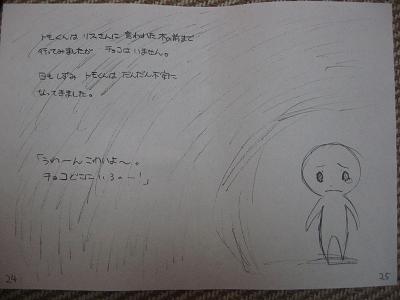 トモくんは リスさんに 言われた 木の前まで
行ってみましたが チョコは いません。
日もしずみ トモくんは だんだん不安に
なってきました。
「うわーん こわいよ〜。
チョコどこに いるのー!」
24
25